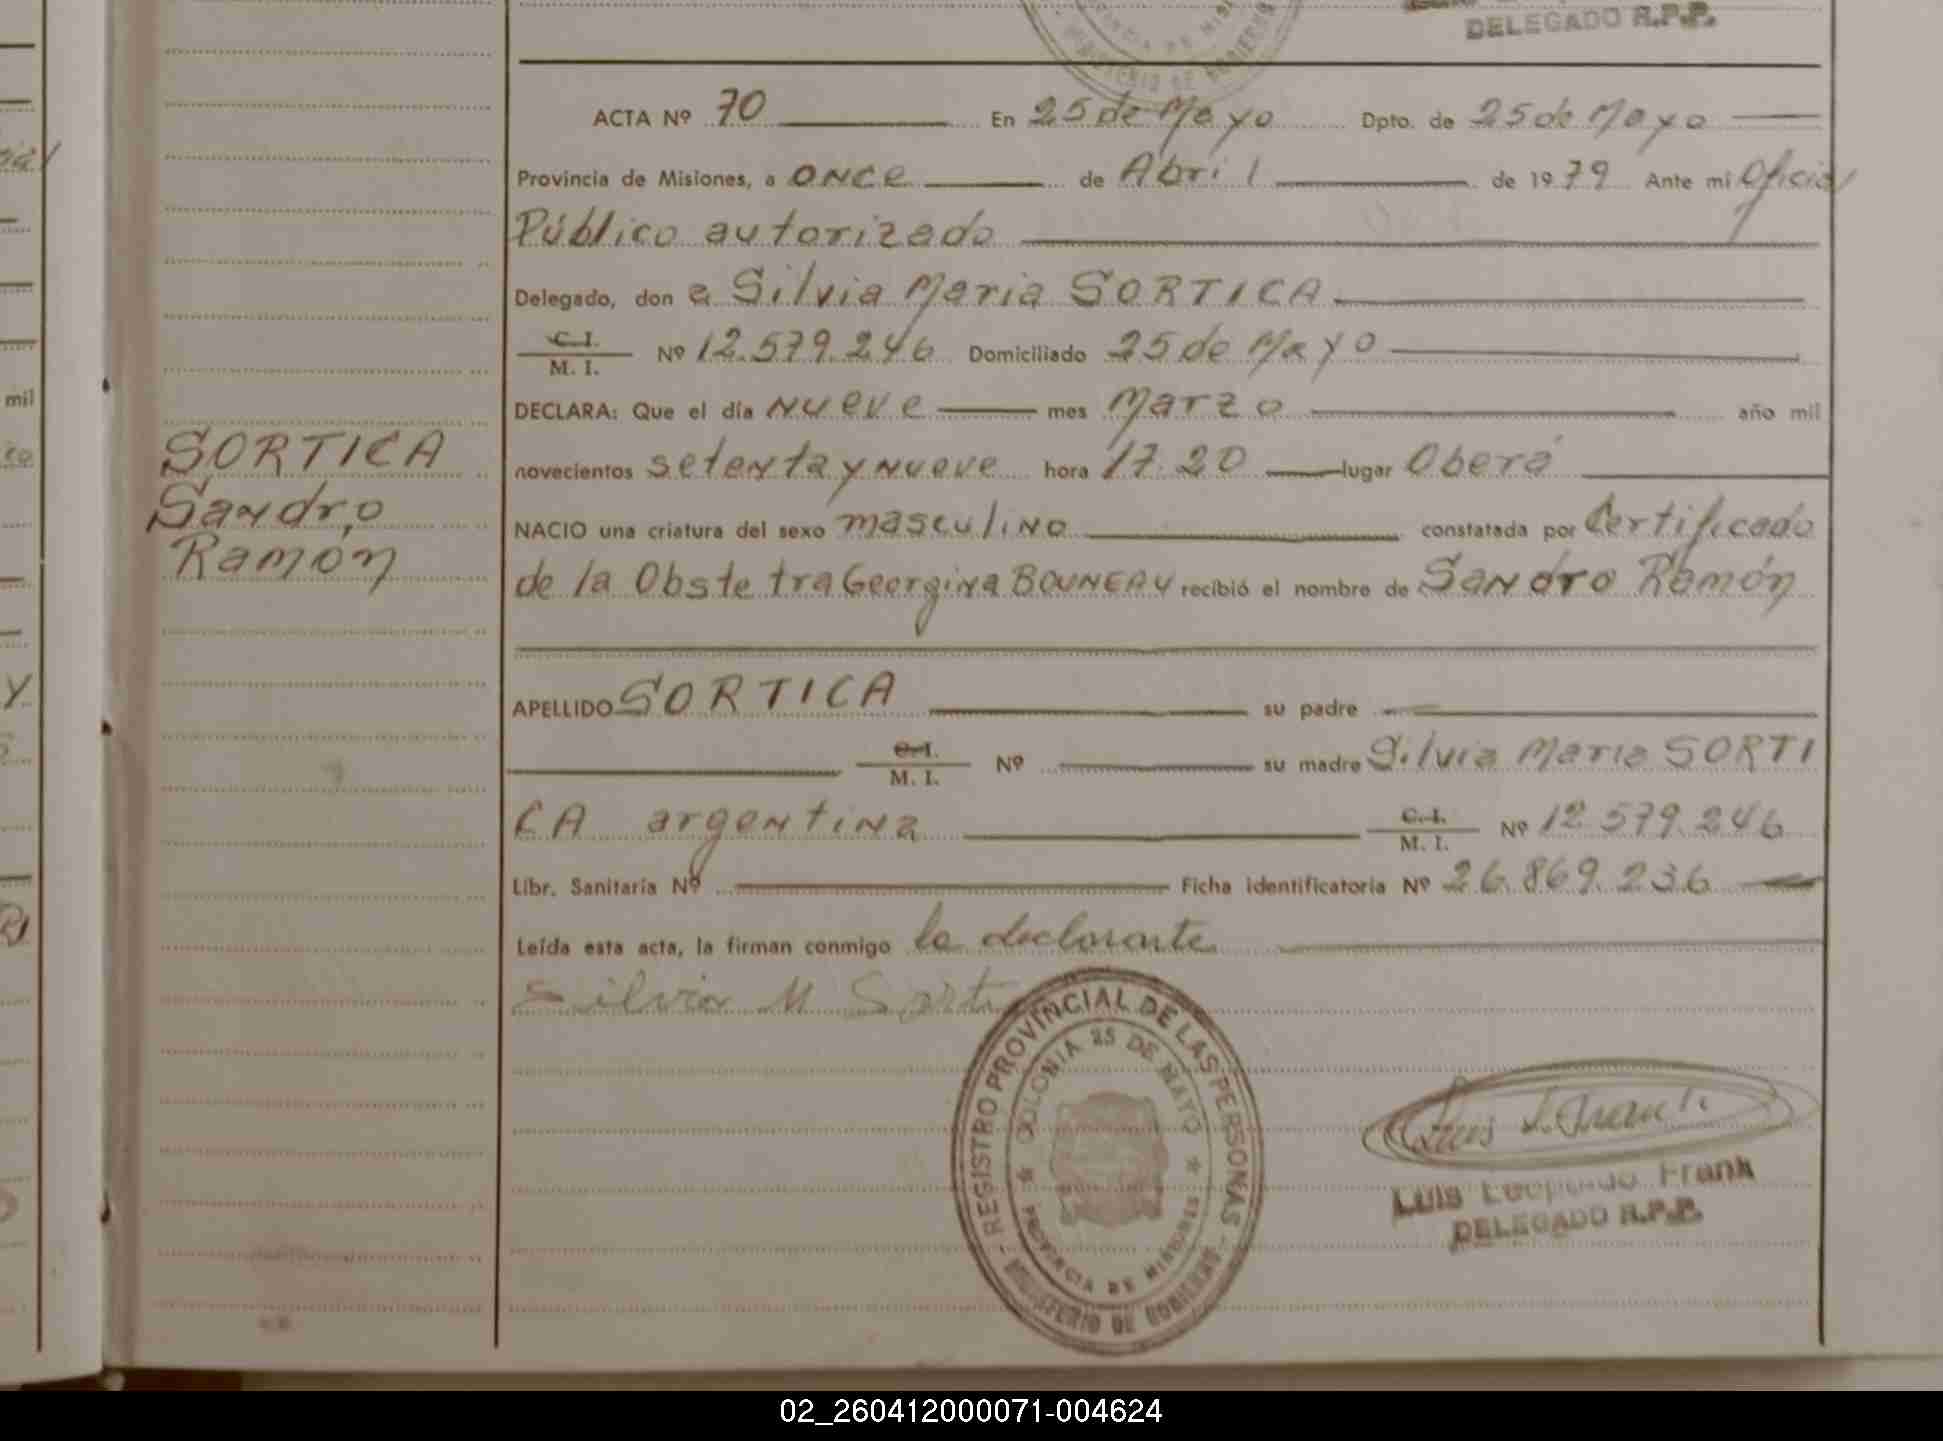 DELEGADO R.P.P.
PROVINCIA DE MISIONES
MINISTERIO DE GOBIERNO
ACTA Nº 70 En 25 de Mayo Dpto. de 25 de Mayo
Provincia de Misiones, a ONCE de Abril de 1979 Ante mi Oficial
Público autorizado
Delegado, don a Silvia Maria SORTICA
C.I. / M. I. Nº 12.579.246 Domiciliado 25 de Mayo
DECLARA: Que el día nueve mes Marzo año mil
novecientos setenta y nueve hora 17.20 lugar Oberá
NACIO una criatura del sexo masculino constatada por Certificado
de la Obstetra Georgina BOUNEAU recibió el nombre de Sandro Ramón
SORTICA
Sandro
Ramón
APELLIDO SORTICA su padre
C.I. / M. I. Nº su madre Silvia Maria SORTI
CA argentina C.I. / M. I. Nº 12.579.246
Libr. Sanitaría Nº Ficha identificatoria Nº 26.869.236
Leída esta acta, la firman conmigo la declarante
Silvia M Sorti
REGISTRO PROVINCIAL DE LAS PERSONAS
COLONIA 25 DE MAYO
PROVINCIA DE MISIONES
MINISTERIO DE GOBIERNO
Luis Leopoldo Frank
DELEGADO R.P.P.
mil
02_260412000071-004624